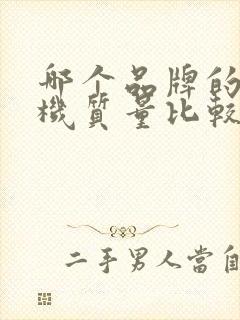 哪个品牌的
機質量比較
二手男人當自